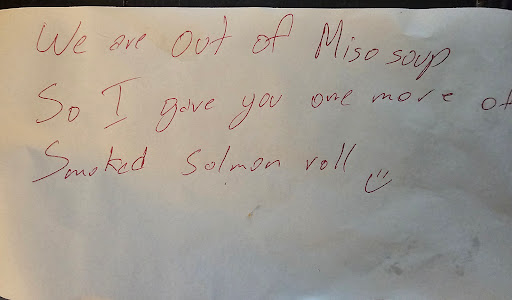 We are out of Miso soup
So I gave you one more of
Smoked Salmon roll